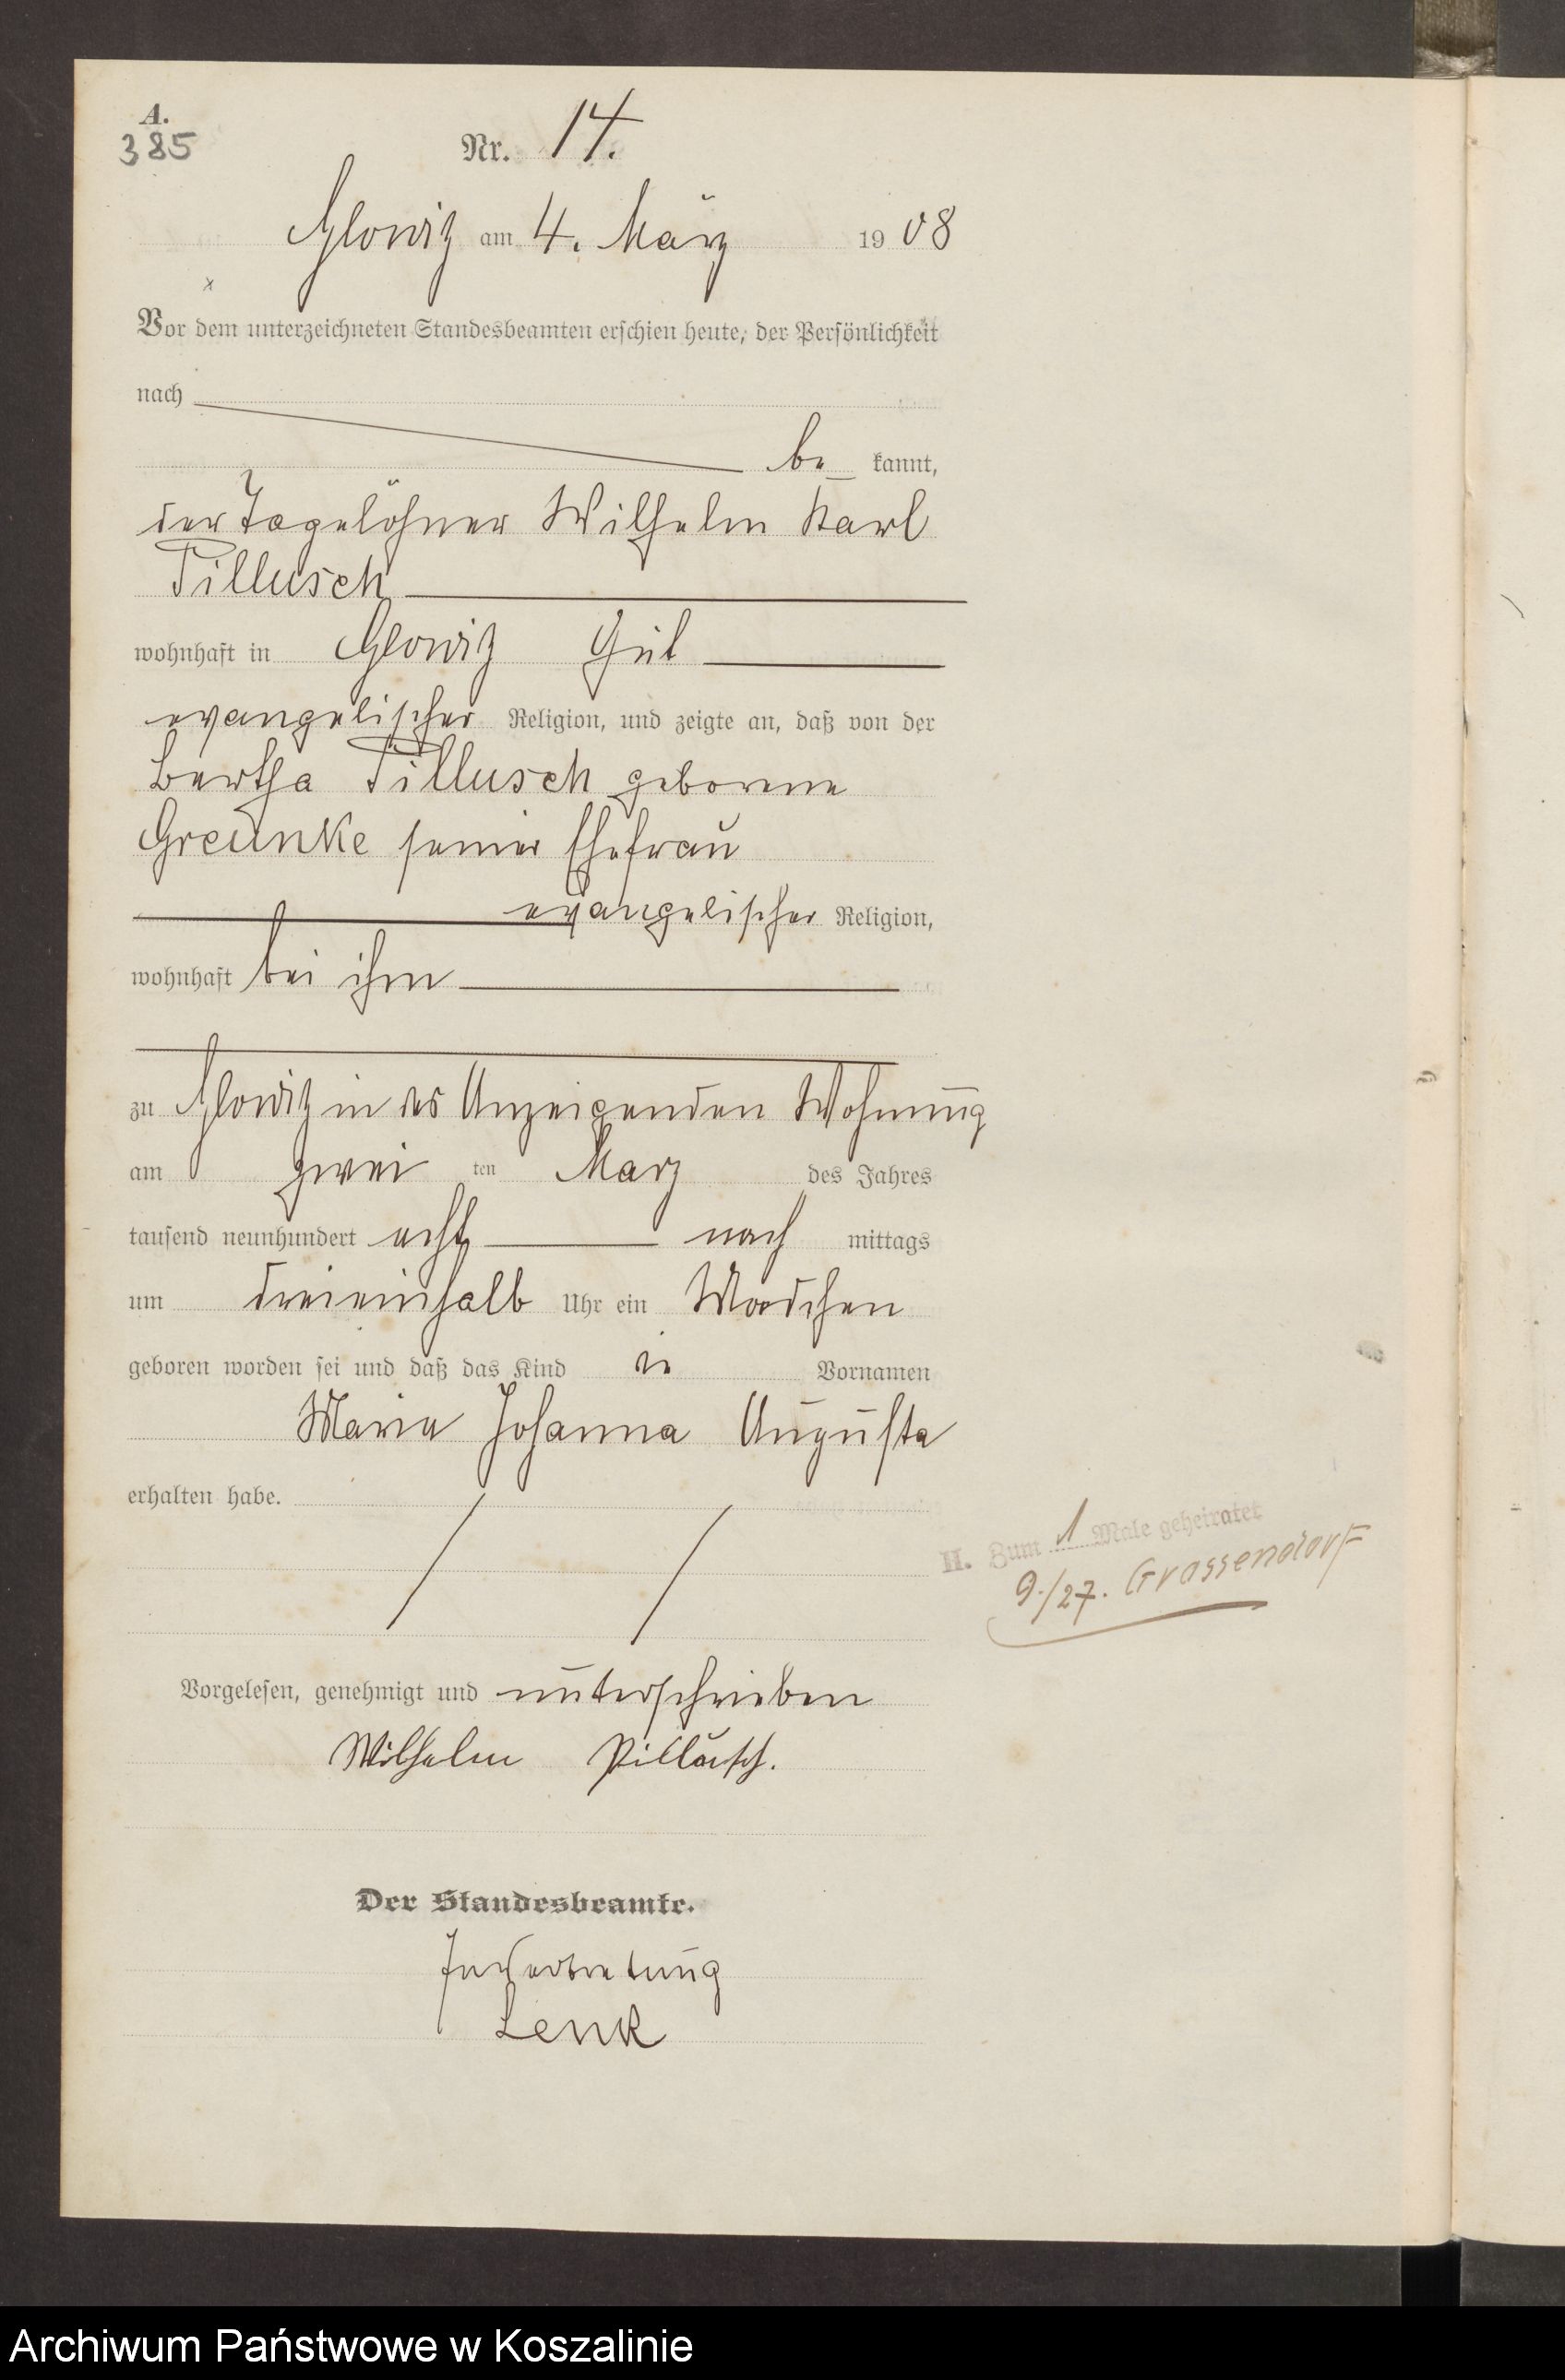 A.
385
Nr. 14.
Glowitz am 4. März 1908
Vor dem unterzeichneten Standesbeamten erschien heute, der Persönlichkeit
nach
be kannt,
der Tagelöhner Wilhelm Karl
Pillusch
wohnhaft in Glowitz Gut
evangelischer Religion, und zeigte an, daß von der
Bertha Pillusch geborene
Greunke seiner Ehefrau
evangelischer Religion,
wohnhaft bei ihm
zu Glowitz in des Anzeigenden Wohnung
am zwei ten März des Jahres
tausend neunhundert acht nach mittags
um dreieinhalb Uhr ein Mädchen
geboren worden sei und daß das Kind die Vornamen
Maria Johanna Augusta
erhalten habe.
II. Zum 1 Male geheiratet
9./27. Grossendorf
Vorgelesen, genehmigt und unterschrieben
Wilhelm Pillusch.
Der Standesbeamte.
In Vertretung
Lenk
Archiwum Państwowe w Koszalinie